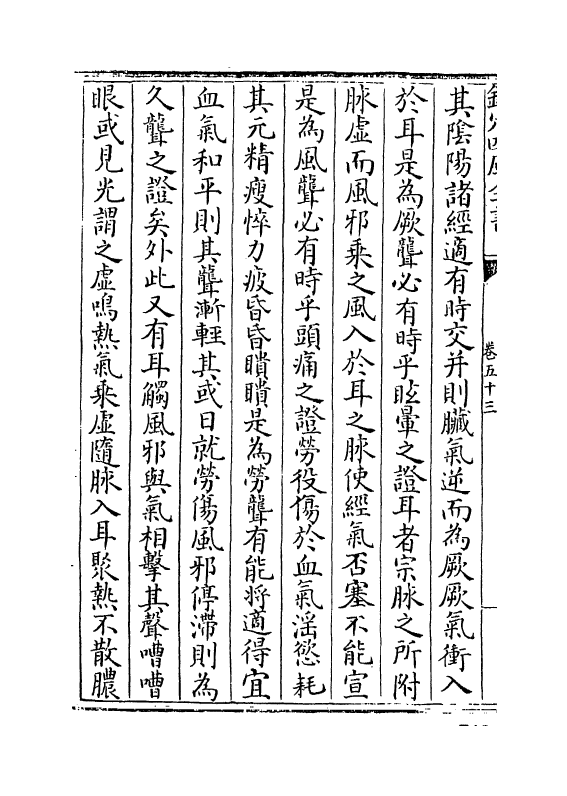 卷五十三
其陰陽諸經適有時交并則臟氣逆而為厥厥氣衝入
於耳是為厥聾必有時乎眩暈之證耳者宗脉之所附
脉虛而風邪乗之風入於耳之脉使經氣否塞不能宣
是為風聾必有時乎頭痛之證勞役傷於血氣淫慾耗
其元精瘦悴力疲昏昏瞶瞶是為勞聾有能將適得宜
血氣和平則其聾漸輕其或日就勞傷風邪停滯則為
久聾之證矣外此又有耳觸風邪與氣相擊其聲嘈嘈
眼或見光謂之虛鳴熱氣乗虛隨脉入耳聚熱不散膿